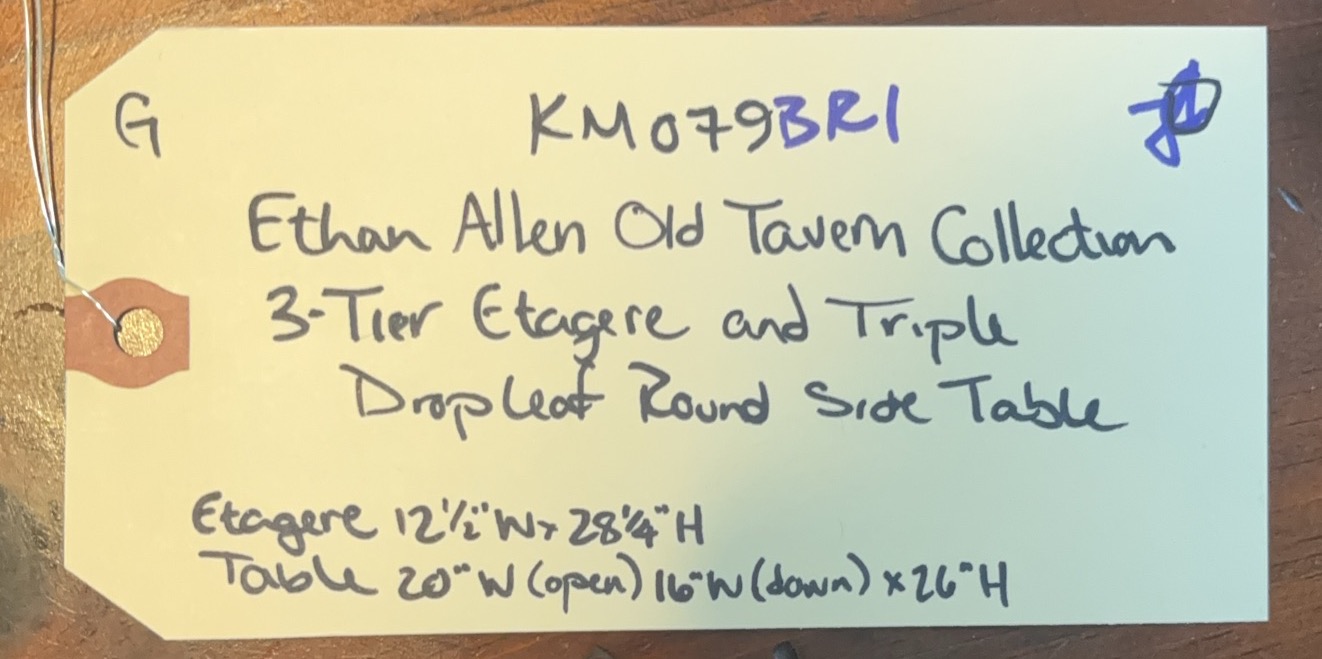 G KM079BR1
Ethan Allen Old Tavern Collection
3-Tier Etagere and Triple
Dropleaf Round Side Table
Etagere 12½" W x 28¼" H
Table 20" W (open) 16" W (down) x 26" H